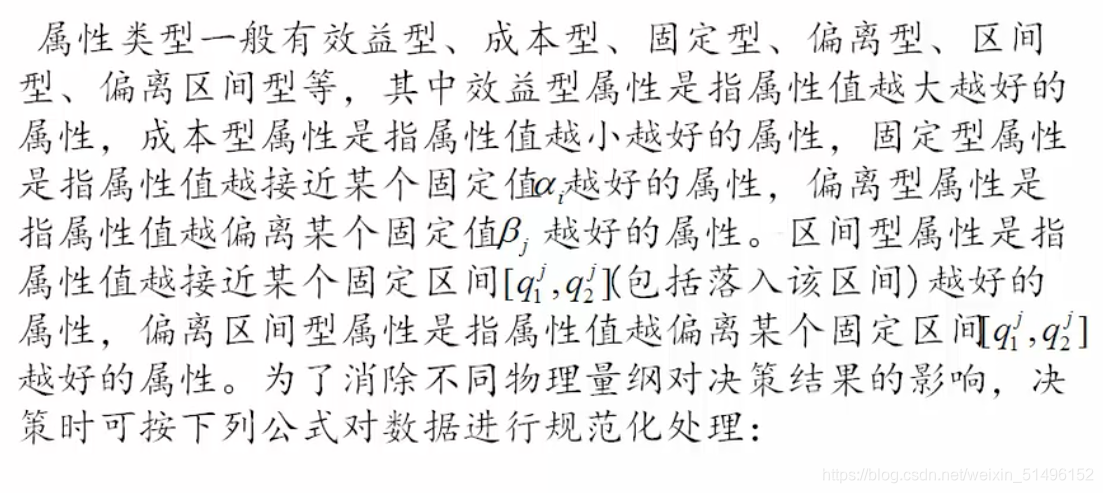 属性类型一般有效益型、成本型、固定型、偏离型、区间
型、偏离区间型等，其中效益型属性是指属性值越大越好的
属性，成本型属性是指属性值越小越好的属性，固定型属性
是指属性值越接近某个固定值αᵢ越好的属性，偏离型属性是
指属性值越偏离某个固定值βⱼ越好的属性。区间型属性是指
属性值越接近某个固定区间[q₁ʲ,q₂ʲ](包括落入该区间)越好的
属性，偏离区间型属性是指属性值越偏离某个固定区间[q₁ʲ,q₂ʲ]
越好的属性。为了消除不同物理量纲对决策结果的影响，决
策时可按下列公式对数据进行规范化处理：
https://blog.csdn.net/weixin_51496152